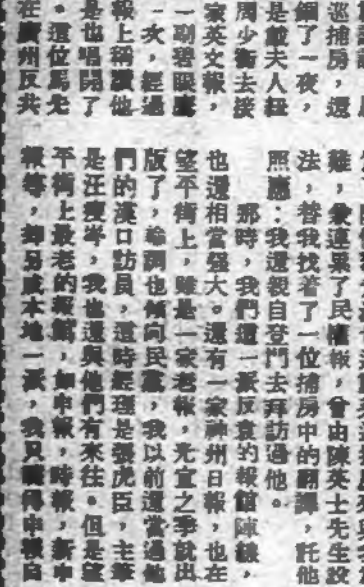 巡捕房,還
關了一夜,
是戴夫人鈕
周少衡去接
家英文報,
一副碧眼
一次,經過
報上稱讚他
是也唱開了
。這位馬先
在廣州反共
難,象連累了民權報,曾由陳英士先生設
法,替我找着了一位捕房中的翻譯,託他
照應:我還親自登門去拜訪過他。
那時,我們這一派反袁的報館陣線,
也還相當強大。還有一家神州日報,也在
望平街上,雖是一家老報,光宣之季就出
版了,論調也傾向民黨,我以前還當過他
們的漢口訪員,這時經理是張虎臣,主筆
是汪瘦岑,我也還與他們有來往。但是望
平街上最老的報館,如申報,時報,新申
報等,却另成本地一派,我只覺得申報自